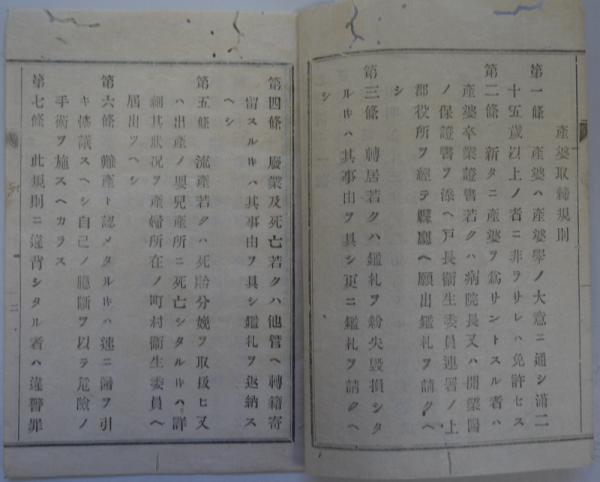 産婆取締規則
第一條 産婆ハ産婆學ノ大意ニ通シ滿二
十五歳以上ノ者ニ非ラサレハ免許セス
第二條 新タニ産婆ヲ爲サントスル者ハ
産婆卒業證書若クハ病院長又ハ開業醫
ノ保證書ヲ添ヘ戸長衛生委員連署ノ上
郡役所ヲ經テ縣廳ヘ願出鑑札ヲ請クヘ
シ
第三條 轉居若クハ鑑札ヲ紛失毀損シタ
ルキハ其事由ヲ具シ更ニ鑑札ヲ請クヘ
シ
第四條 廢業及死亡若クハ他管ヘ轉籍寄
留スルキハ其事由ヲ具シ鑑札ヲ返納ス
ヘシ
第五條 流産若クハ死胎分娩ヲ取扱ヒ又
ハ出産ノ嬰兒産所ニ死亡シタルキハ詳
細其狀況ヲ産婦所在ノ町村衛生委員ヘ
届出ツヘシ
第六條 難産ト認メタルキハ速ニ醫ヲ引
キ協議スヘシ自己ノ臆斷ヲ以テ危險ノ
手術ヲ施スヘカラス
第七條 此規則ニ違背シタル者ハ違警罪
二